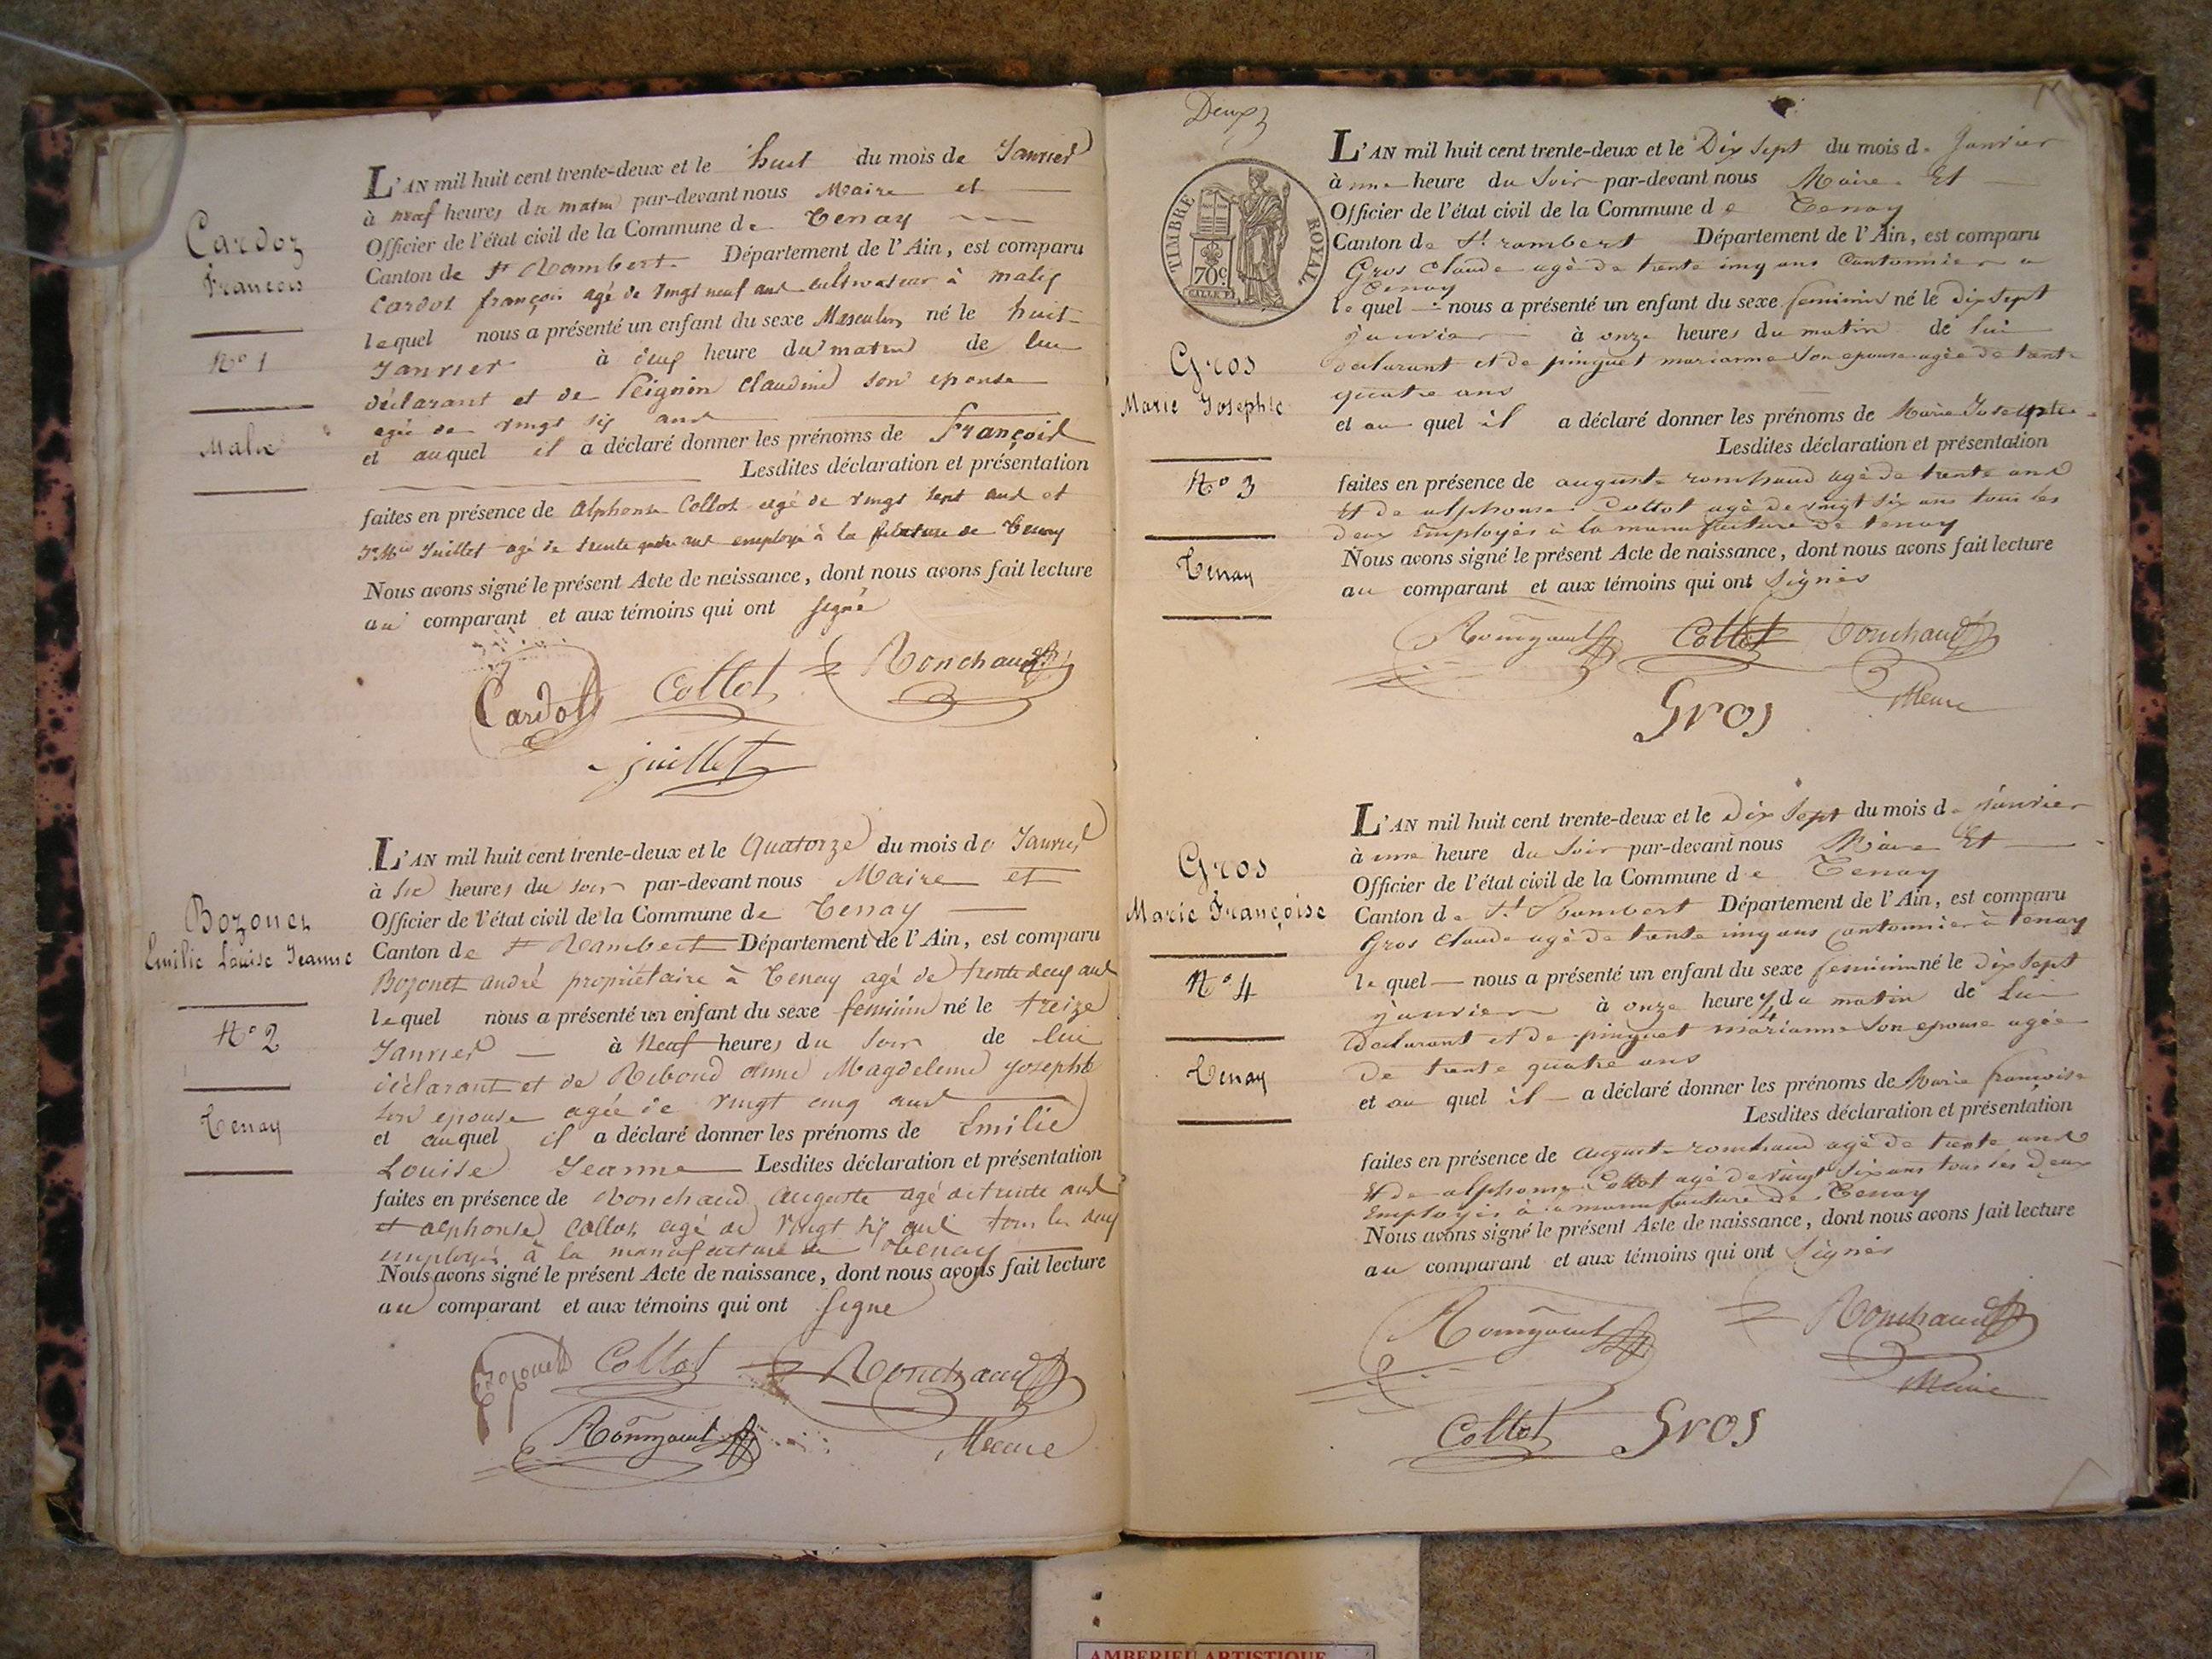 Cardoz
François
N° 1
Malix
L'AN mil huit cent trente-deux et le huit du mois de Janvier
à neuf heures du matin par-devant nous Maire et
Officier de l'état civil de la Commune de Tenay
Canton de St Rambert Département de l'Ain, est comparu
Cardot françois agé de vingt neuf ans cultivateur à malix
lequel nous a présenté un enfant du sexe Masculin né le huit
Janvier à deux heure du matin de lui
déclarant et de Peignin Claudine son epouse
agée de vingt six ans
et auquel il a déclaré donner les prénoms de François
Lesdites déclaration et présentation
faites en présence de Alphonse Collot agé de vingt sept ans et
Juillet agé de trente quatre ans employé à la filature de Tenay
Nous avons signé le présent Acte de naissance, dont nous avons fait lecture
au comparant et aux témoins qui ont signé
Cardot Collot Ronchaud
juillet
Bozonet
Emilie Louise Jeanne
N° 2
Tenay
L'AN mil huit cent trente-deux et le Quatorze du mois de Janvier
à six heures du soir par-devant nous Maire et
Officier de l'état civil de la Commune de Tenay
Canton de St Rambert Département de l'Ain, est comparu
Bozonet andré propriétaire à Tenay agé de trente deux ans
lequel nous a présenté un enfant du sexe feminin né le treize
Janvier à Neuf heures du soir de lui
déclarant et de Reboud Anne Magdeleine Josephte
son epouse agée de vingt cinq ans
et auquel il a déclaré donner les prénoms de Emilie
Louise Jeanne Lesdites déclaration et présentation
faites en présence de Ronchaud Auguste agé de trente ans
et alphonse Collot agé de vingt six ans tous les deux
employés à la manufacture de Tenay
Nous avons signé le présent Acte de naissance, dont nous avons fait lecture
au comparant et aux témoins qui ont signé
Bozonet Collot Ronchaud
Maire
Deux
TIMBRE ROYAL
70 c.
Gros
Marie Josephte
N° 3
Tenay
L'AN mil huit cent trente-deux et le Dix Sept du mois de Janvier
à une heure du Soir par-devant nous Maire Et
Officier de l'état civil de la Commune de Tenay
Canton de St rambert Département de l'Ain, est comparu
Gros Claude agé de trente cinq ans Cantonnier a
Tenay
lequel nous a présenté un enfant du sexe feminin né le dix sept
janvier à onze heures du matin de lui
declarant et de pinguet marianne Son epouse agée de trente
quatre ans
et au quel il a déclaré donner les prénoms de Marie Josephte
Lesdites déclaration et présentation
faites en présence de auguste ronchaud agé de trente ans
Et de alphonse Collot agé de vingt six ans tous les
deux Employés à la manufacture de tenay
Nous avons signé le présent Acte de naissance, dont nous avons fait lecture
au comparant et aux témoins qui ont Signés
Collot Ronchaud
Maire
Gros
Gros
Marie Françoise
N° 4
Tenay
L'AN mil huit cent trente-deux et le Dix Sept du mois de janvier
à une heure du Soir par-devant nous Maire Et
Officier de l'état civil de la Commune de Tenay
Canton de St Rambert Département de l'Ain, est comparu
Gros Claude agé de trente cinq ans Cantonnier à tenay
lequel nous a présenté un enfant du sexe feminin né le dix Sept
janvier à onze heure 1/4 du matin de Lui
Declarant et de pinguet marianne Son epouse agée
De trente quatre ans
et au quel il a déclaré donner les prénoms de Marie francoise
Lesdites déclaration et présentation
faites en présence de august ronchaud agé de trente ans
Et de alphonse Collot agé de vingt Six ans tous les deux
Employés à la manufacture de Tenay
Nous avons signé le présent Acte de naissance, dont nous avons fait lecture
au comparant et aux témoins qui ont Signés
Ronchaud
Maire
Collot Gros
AMBERIEU ARTISTIQUE